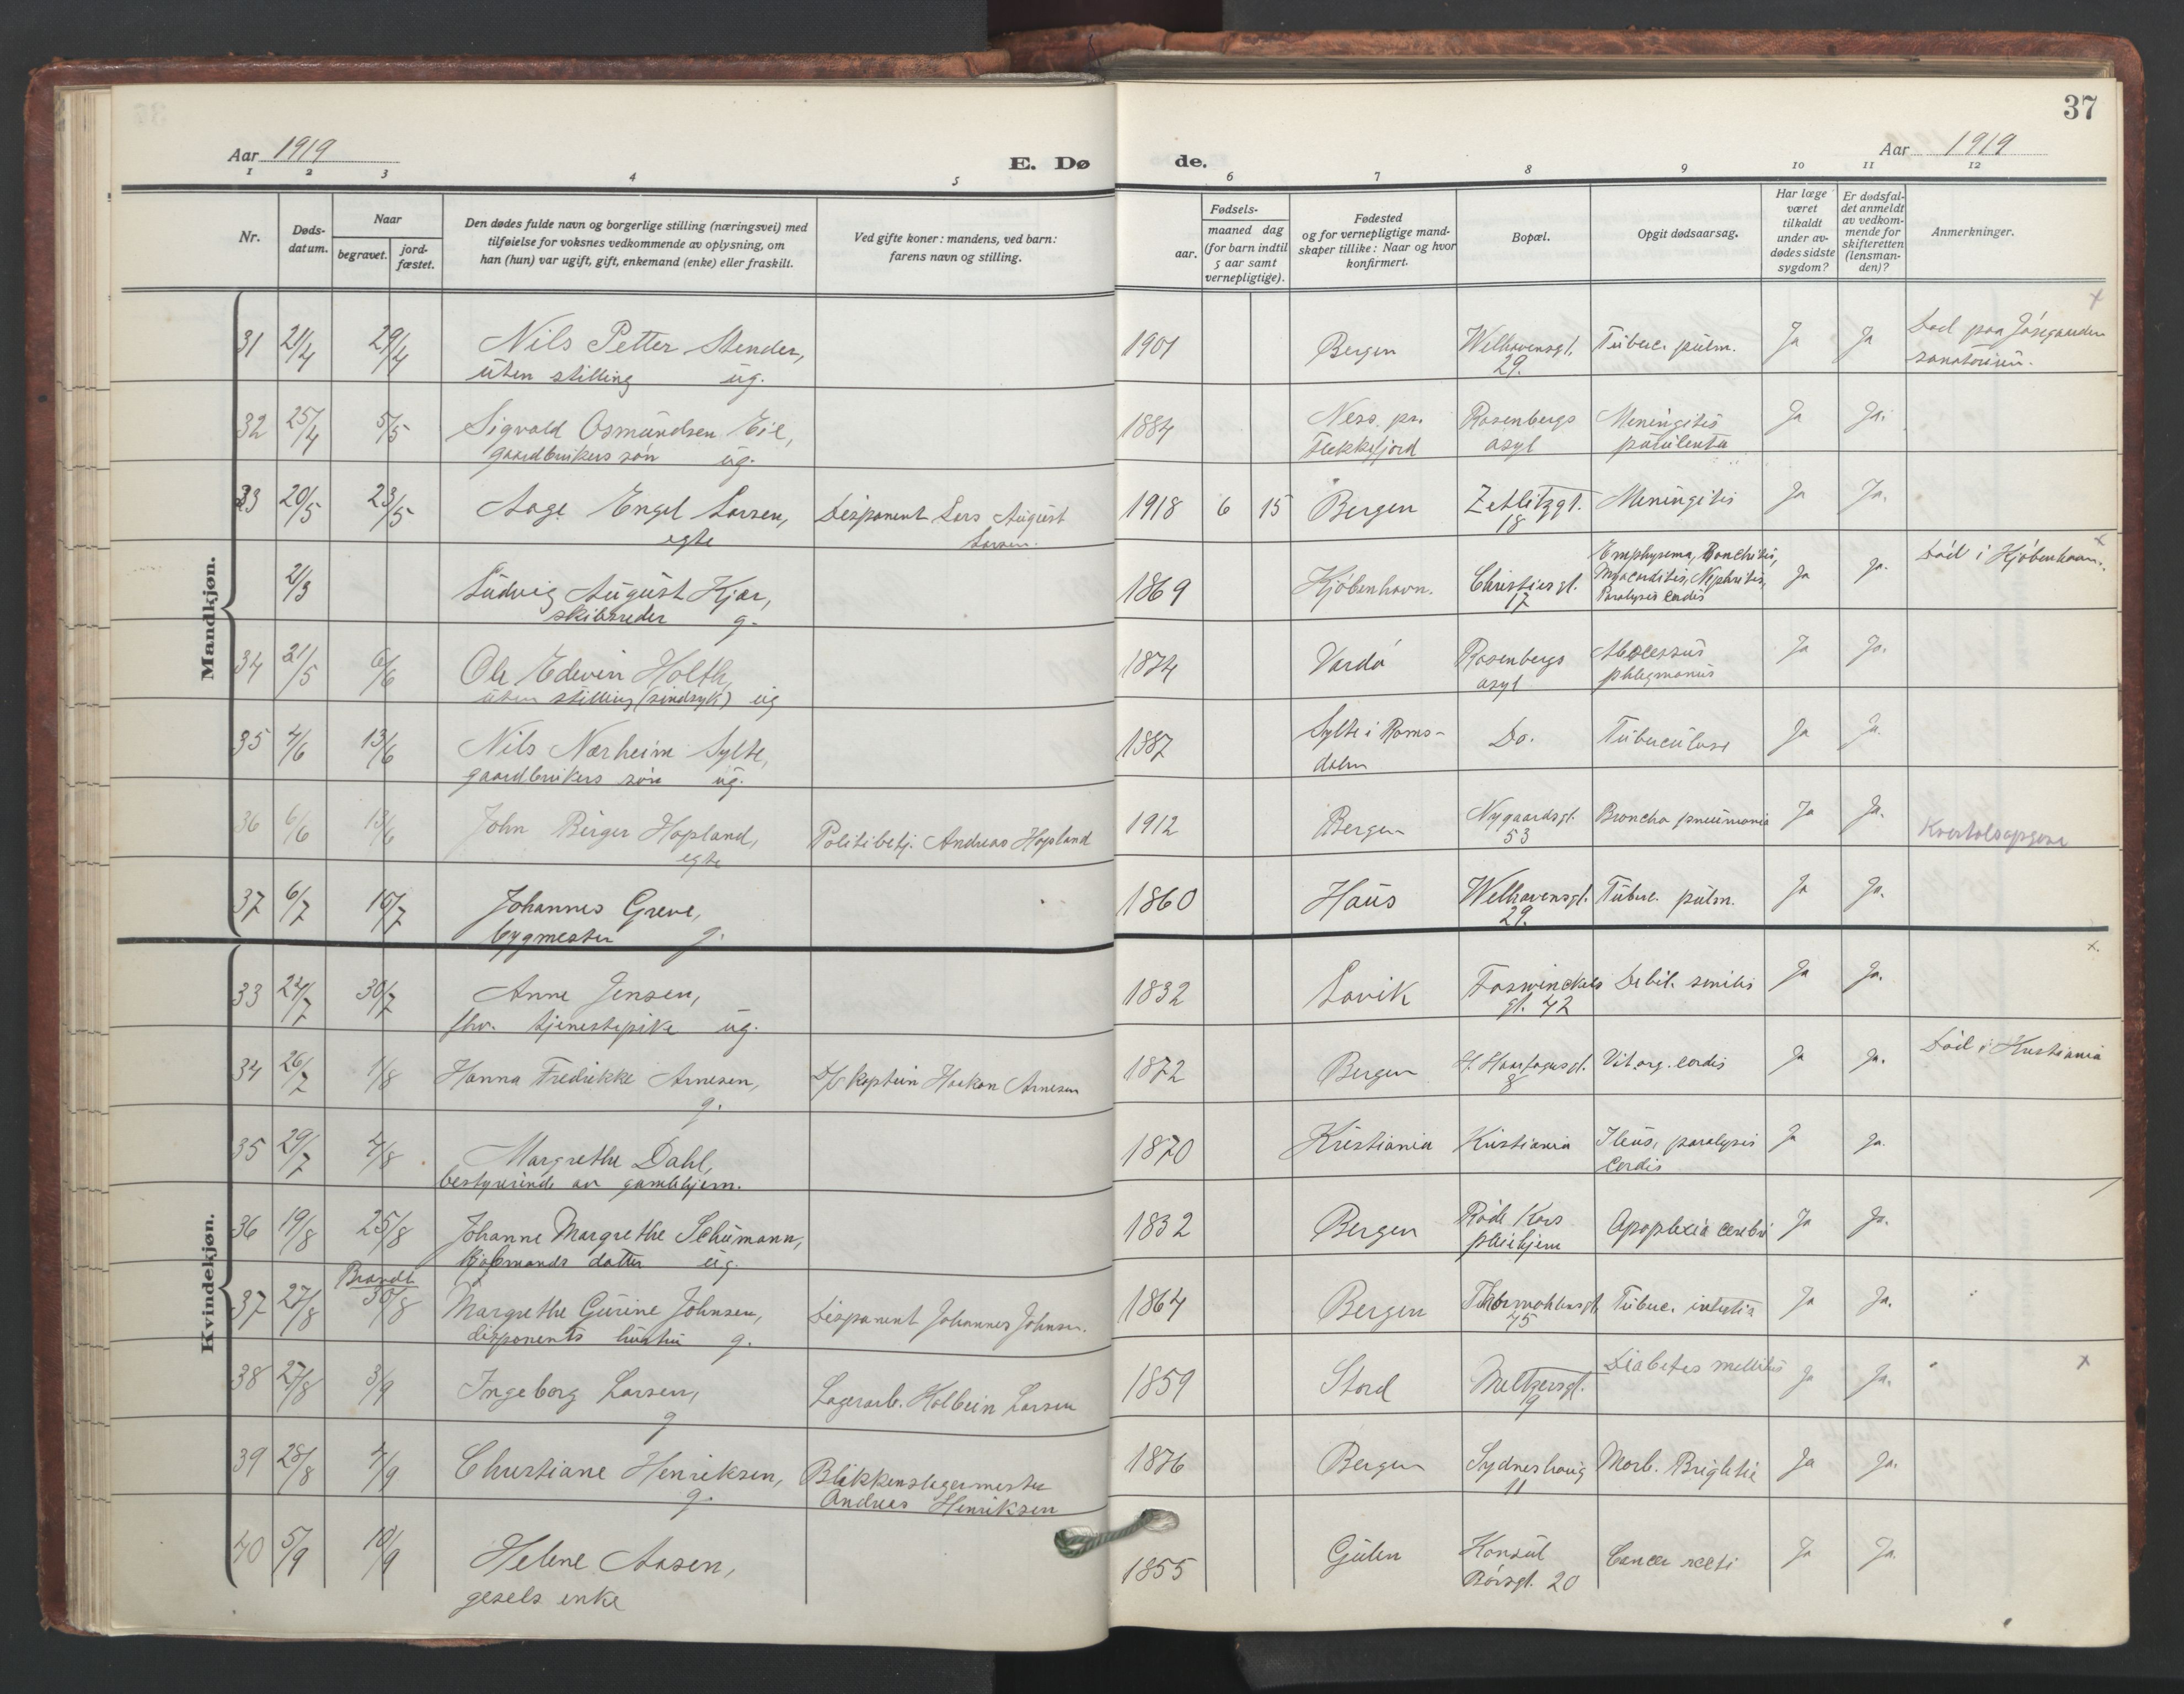 37
Aar 1919
E. Døde.
Aar 1919
1 2 3 4 5 6 7 8 9 10 11 12
Nr.
Døds-
datum.
Naar
begravet.
jord-
fæstet.
Den dødes fulde navn og borgerlige stilling (næringsvei) med
tilføielse for voksnes vedkommende av oplysning, om
han (hun) var ugift, gift, enkemand (enke) eller fraskilt.
Ved gifte koner: mandens, ved barn:
farens navn og stilling.
Fødsels-
aar.
maaned dag
(for barn indtil
5 aar samt
vernepligtige).
Fødested
og for vernepligtige mand-
skaper tillike: Naar og hvor
konfirmert.
Bopæl.
Opgit dødsaarsag.
Har læge
været
tilkaldt
under av-
dødes sidste
sygdom?
Er dødsfal-
det anmeldt
av vedkom-
mende for
skifteretten
(lensman-
den)?
Anmerkninger.
Mandkjøn.
31 21/4 29/4 Nils Petter Stender, 1901 Bergen Welhavensgt. Tuberc. pulm. Ja Ja Död paa
uten stilling ug. 29. sanatorium.
32 25/4 5/5 Sigvald Osmundsen Eie, 1884 Ness pr. Rosenbergs Meningitis Ja Ja.
gaardbrukers søn ug. Flekkefjord asyl purulenta
33 20/5 23/5 Aage Engel Larsen, Disponent Lars August 1918 6 15 Bergen Zetlitzgt. Meningitis Ja Ja.
egte Larsen. 18
21/3 Ludvig August Kjær, 1869 Kjöbenhavn. Christiesgt. Emphysema, Bronchitis, Ja Ja. Död i Kjöbenhavn.
skibsreder g. 17 Myocarditis, Nephritis,
Paralysis cordis
34 21/5 6/6 Ole Edevin Holth, 1874 Vardö Rosenbergs Abscessus Ja Ja.
uten stilling (sindsyk) ug asyl phlegmonus
35 4/6 13/6 Nils Nærheim Sylte, 1887 Sylte i Roms- Do. Tuberculose Ja Ja.
gaardbrukers søn ug. dalen
36 6/6 13/6 John Birger Hopland, Politibetj. Andreas Hopland 1912 Bergen Nygaardsgt. Broncho pneumonia Ja Ja.
egte 53 Kvartalsopgave
37 6/7 10/7 Johannes Greve, 1860 Haus Welhavensgt. Tuberc. pulm. Ja Ja.
bygmester g. 29.
Kvindekjøn.
33 24/7 30/7 Anne Jensen, 1832 Lavik Fosswinckels Debil. senilis Ja Ja.
fhv. tjenestepike ug. gt. 42
34 26/7 1/8 Hanna Fredrikke Arnesen, D/S kaptein Haakon Arnesen 1872 Bergen H. Haarfagersgt. Vit. org. cordis Ja Ja. Död i Kristiania
g. 8
35 29/7 4/8 Margrethe Dahl, 1870 Kristiania Kristiania Ileus, paralysis Ja Ja.
bestyrerinde av gamlehjem. cordis
36 19/8 25/8 Johanne Margrethe Schumann, 1832 Bergen Röde Kors Apoplexia cerebri Ja Ja.
kjøbmands datter ug. pleiehjem
37 27/8 Brændt 30/8 Margrethe Gurine Johnsen, Disponent Johannes Johnsen. 1864 Bergen Thormøhlensgt. Tuberc. intestia Ja Ja.
disponents hustru g. 45
38 27/8 3/9 Ingeborg Larsen, Lagerarb. Holbein Larsen 1859 Stord Meltzersgt. Diabetes mellitus Ja Ja.
g 19
39 28/8 4/9 Christiane Henriksen, Blikkenslagermester 1876 Bergen Sydneshaug Morb. Brightii Ja Ja.
g. Andreas Henriksen 11
40 5/9 10/9 Helene Aasen, 1855 Gulen Konsul Cancer recti Ja Ja.
gesels enke Börsgt. 20